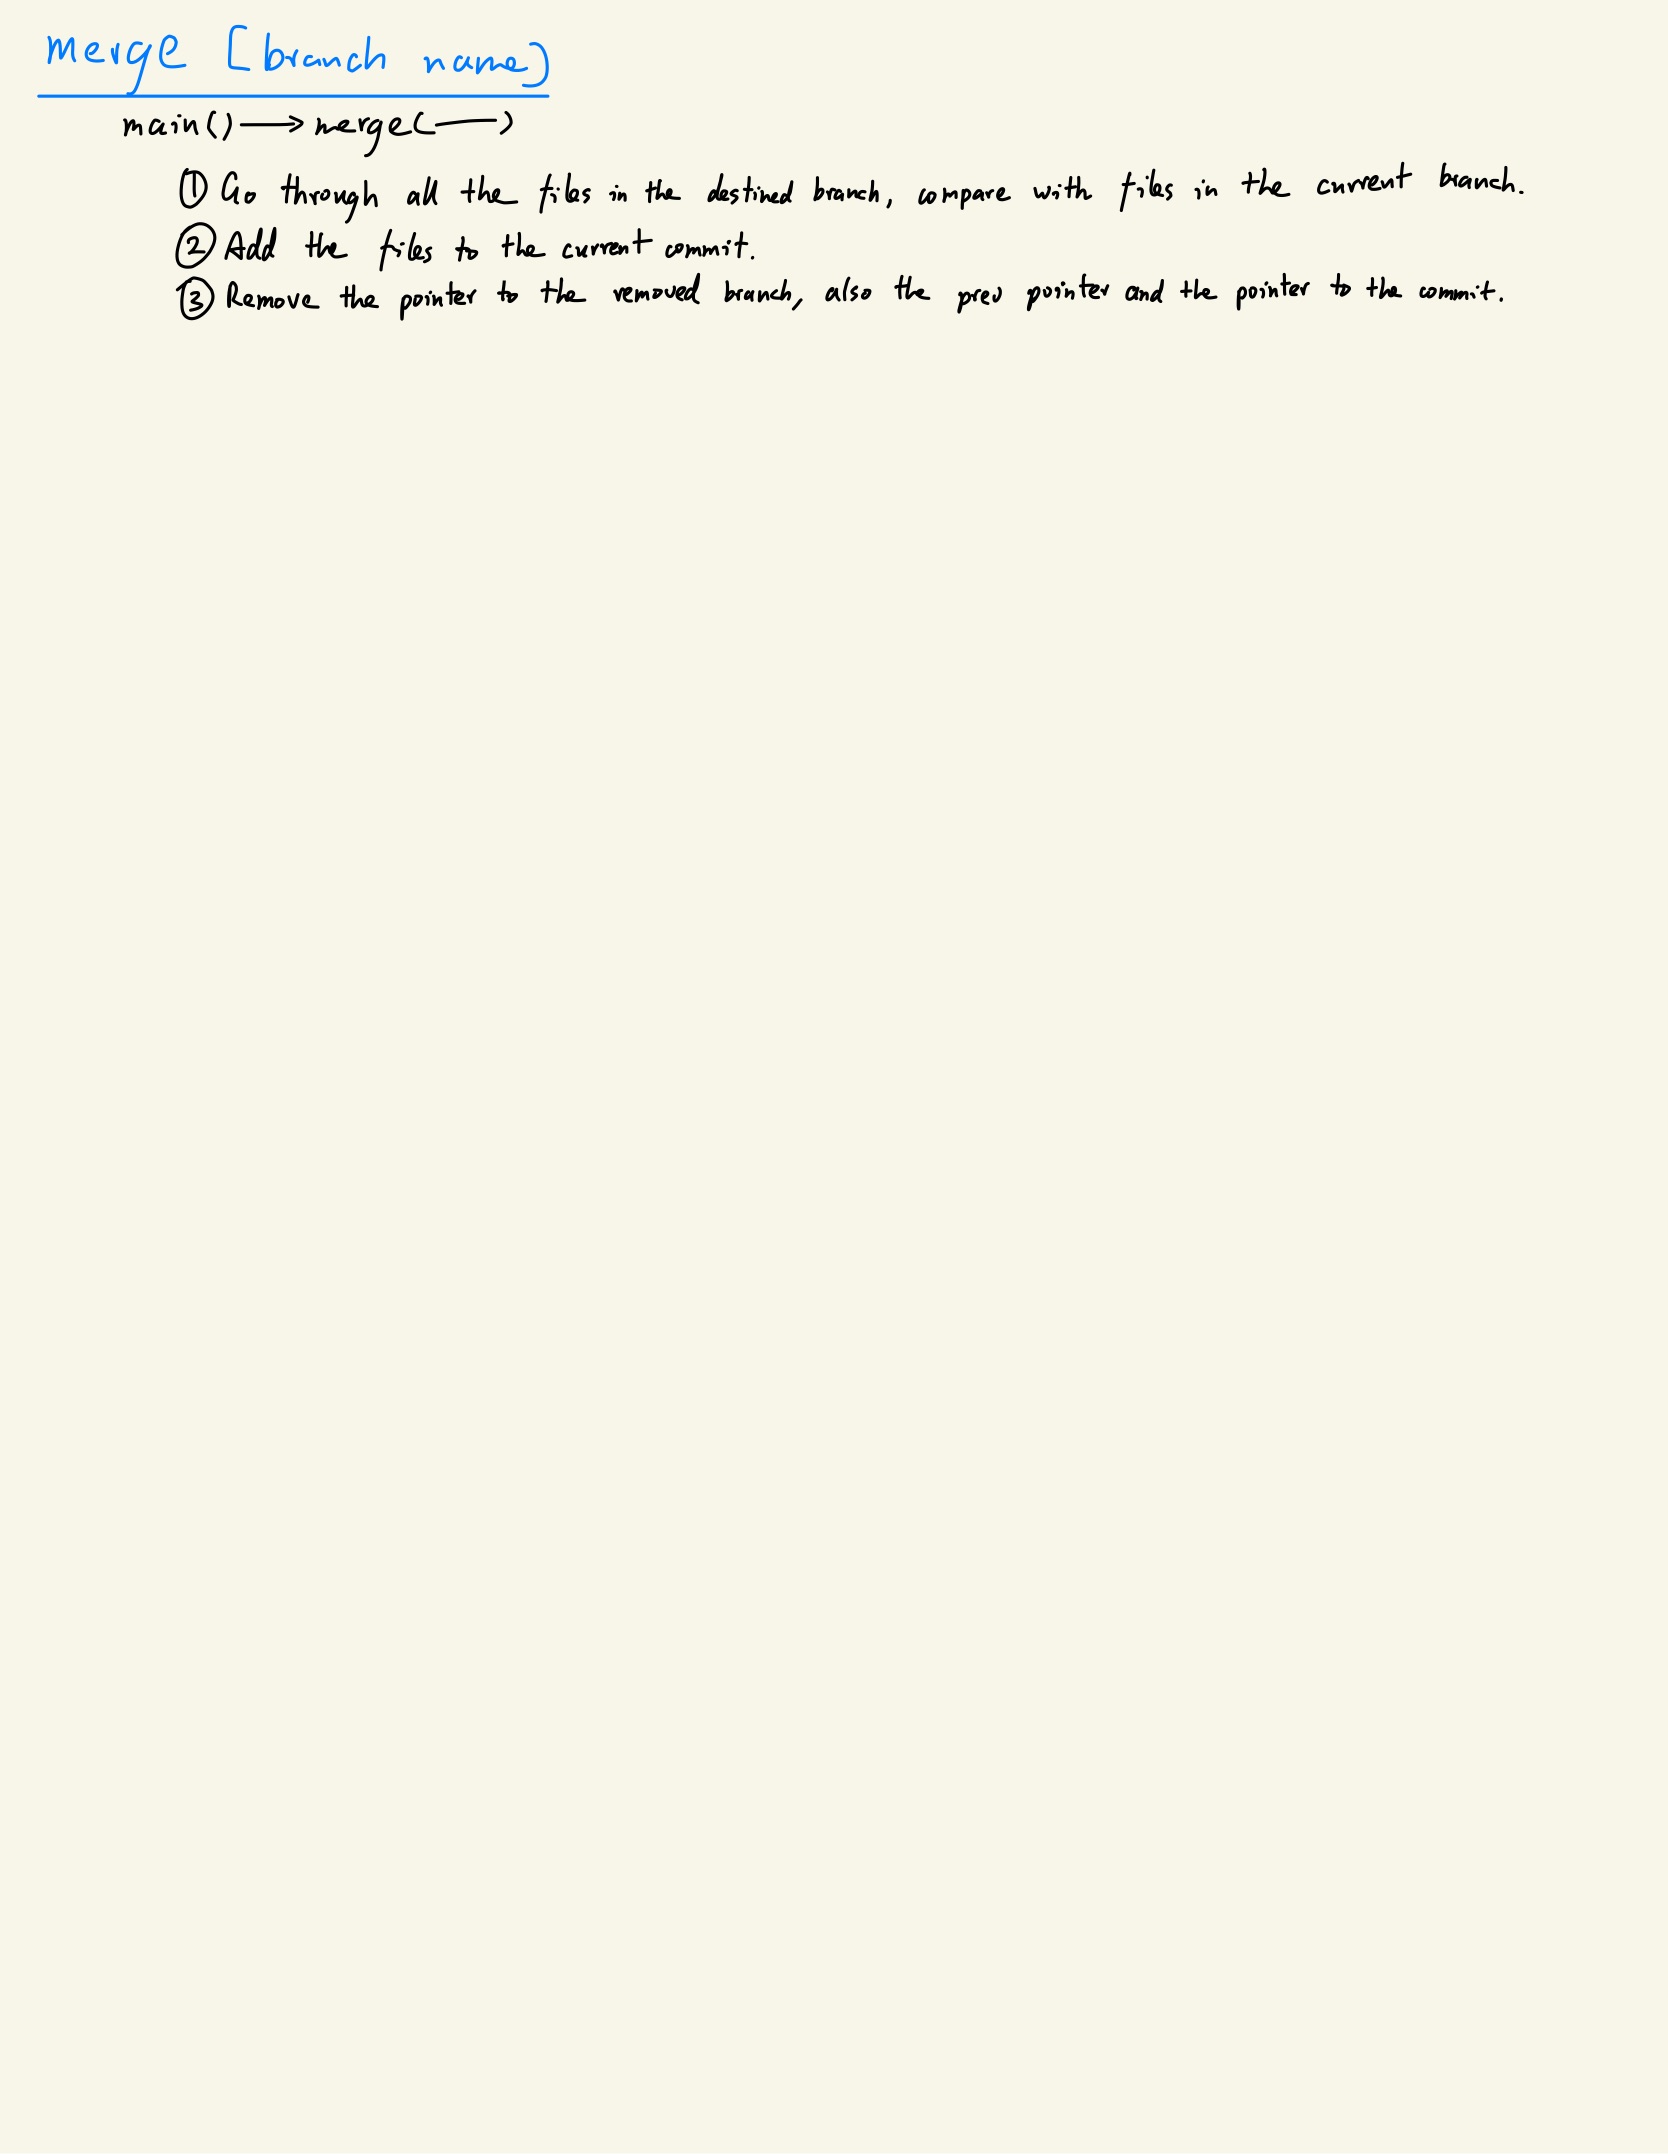 merge [branch name]
main() → merge(—)
① Go through all the files in the destined branch, compare with files in the current branch.
② Add the files to the current commit.
③ Remove the pointer to the removed branch, also the prev pointer and the pointer to the commit.